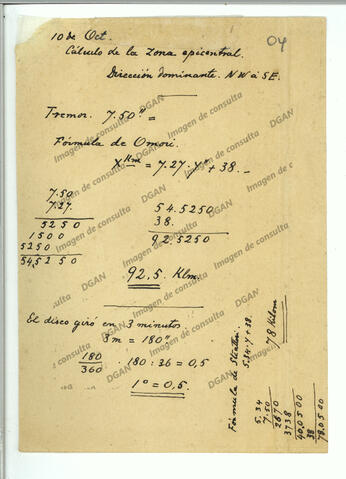 10 de Oct.
04
Cálculo de la zona epicentral.
Dirección dominante. NW á SE.
Tremor. 7.50" =
Fórmula de Omori.
X Km = 7.27. Y" + 38. _
7.50
7.27.
5250
1500
5250
54,5250
54.5250
38.
92.5250
92.5. Klm.
El disco giró en 3 minutos
3m = 180"
180
360
180 : 36 = 0,5
1º = 0,5.
Fórmula de
5.34. Y + 38.
78 Kilom
5.34
7.50
2670
3738
40.0500
38
78.0500
Imagen de consulta
DGAN